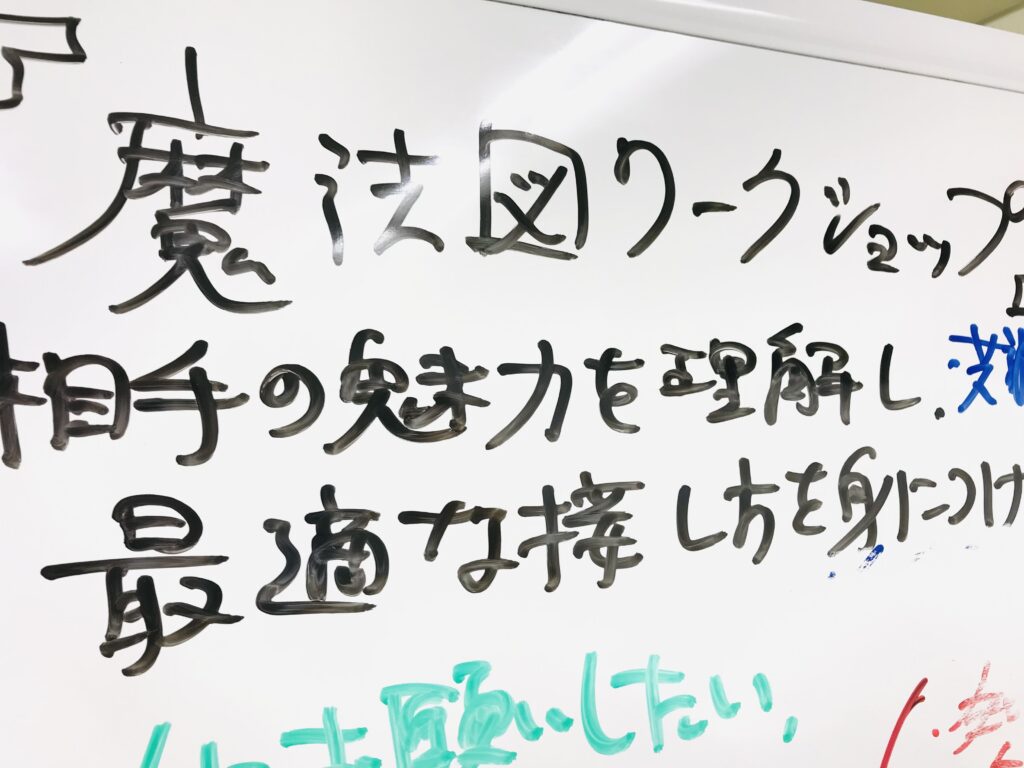 「魔法図ワークショップ
相手の魅力を理解し、
最適な接し方を身につけ
お願いしたい、